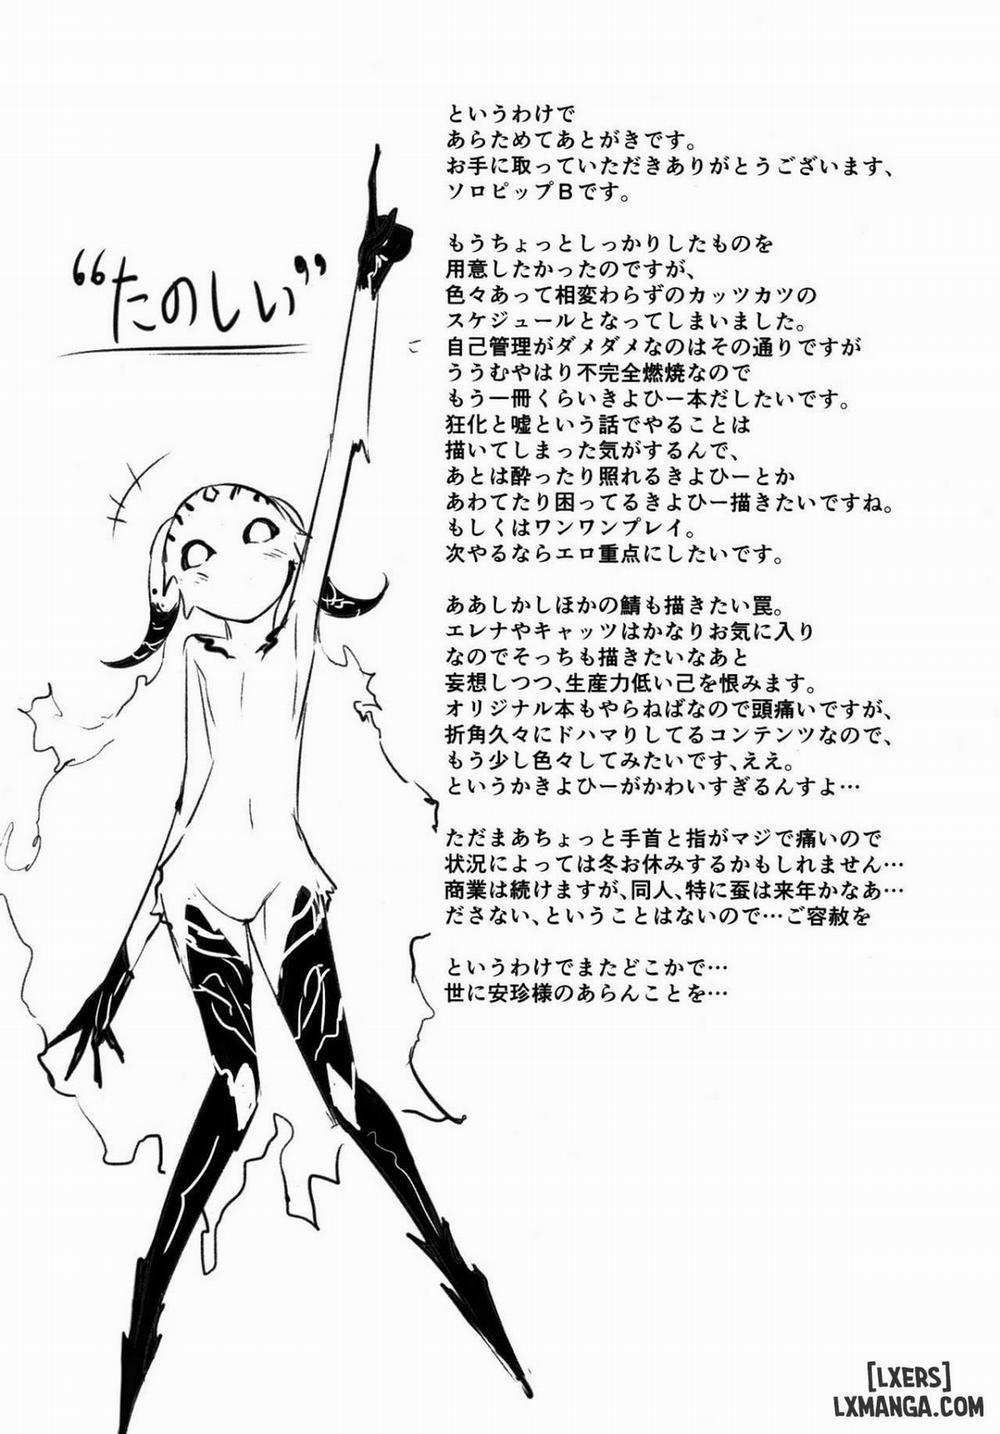 “たのしい”
というわけで
あらためてあとがきです。
お手に取っていただきありがとうございます、
ソロピップBです。
もうちょっとしっかりしたものを
用意したかったのですが、
色々あって相変わらずのカッツカツの
スケジュールとなってしまいました。
自己管理がダメダメなのはその通りですが
ううむやはり不完全燃焼なので
もう一冊くらいきよひー本だしたいです。
狂化と嘘という話でやることは
描いてしまった気がするんで、
あとは酔ったり照れるきよひーとか
あわてたり困ってるきよひー描きたいですね。
もしくはワンワンプレイ。
次やるならエロ重点にしたいです。
ああしかしほかの鯖も描きたい罠。
エレナやキャッツはかなりお気に入り
なのでそっちも描きたいなあと
妄想しつつ、生産力低い己を恨みます。
オリジナル本もやらねばなので頭痛いですが、
折角久々にドハマりしてるコンテンツなので、
もう少し色々してみたいです、ええ。
というかきよひーがかわいすぎるんすよ…
ただまあちょっと手首と指がマジで痛いので
状況によっては冬お休みするかもしれません…
商業は続けますが、同人、特に蚕は来年かなあ…
ださない、ということはないので…ご容赦を
というわけでまたどこかで…
世に安珍様のあらんことを…
[LXERS]
LXMANGA.COM